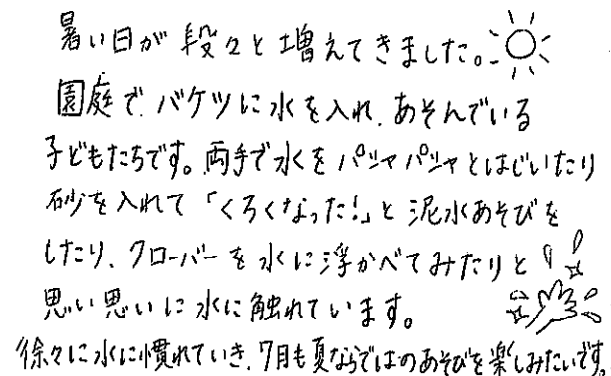 暑い日が段々と増えてきました。
園庭で、バケツに水を入れ、あそんでいる
子どもたちです。両手で水をパシャパシャとはじいたり
砂を入れて「くろくなった!」と泥水あそびを
したり、クローバーを水に浮かべてみたりと
思い思いに水に触れています。
徐々に水に慣れていき、7月も夏ならではのあそびを楽しみたいです。